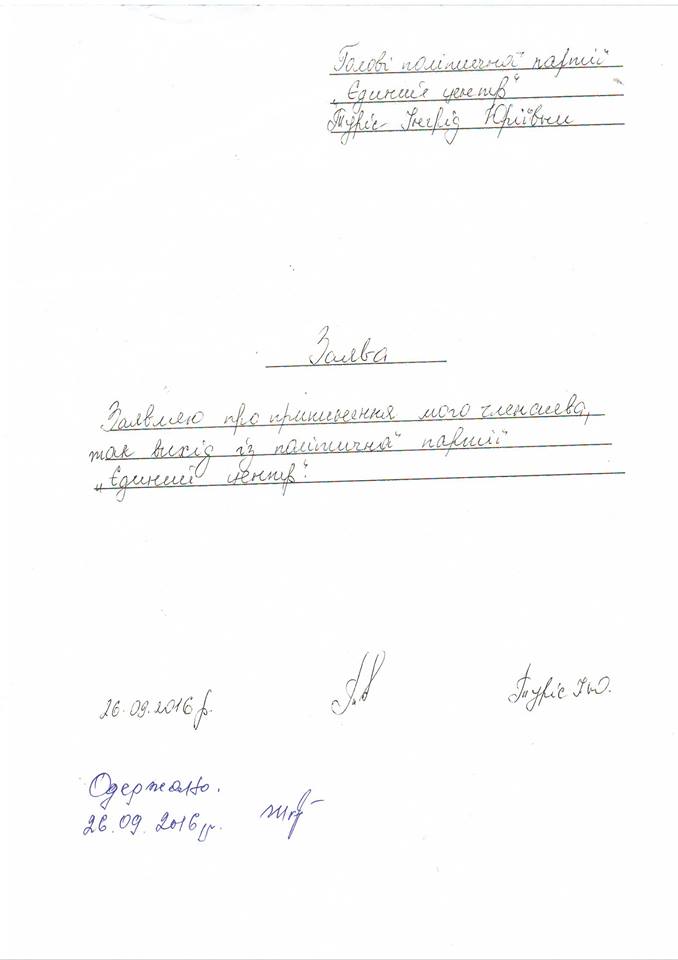 Голові політичної партії
"Єдиний центр"
Туріс Інгрід Юріївни
Заява
Заявляю про припинення мого членства,
так вихід із політичної партії
"Єдиний центр".
26.09.2016 р. Туріс І.Ю.
Одержано.
26.09.2016 р.